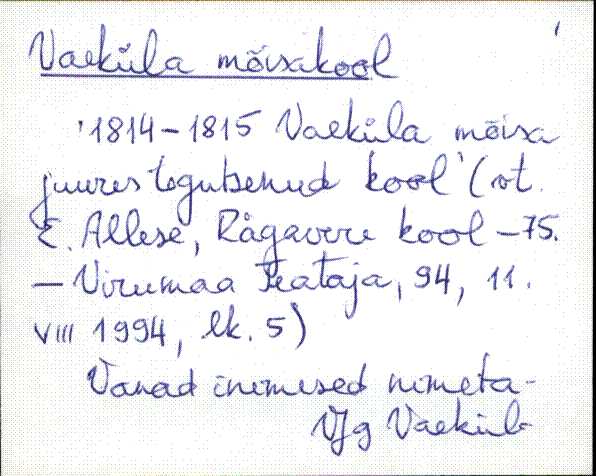 Vaeküla mõisakool
'1814–1815 Vaeküla mõisa
juures tegutsenud kool' (vt.
E. Allese, Rägavere kool – 75.
– Virumaa Teataja, 94, 11.
VIII 1994, lk. 5)
Vanad inimesed nimeta-
VJg Vaeküla